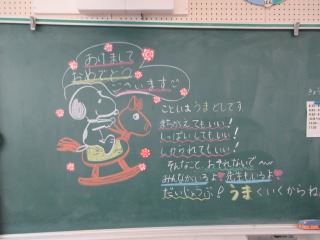 あけまして
おめでとう
ございます
ことしは うまどしです
まちがえてもいい!
しっぱいしてもいい!
しかられてもいい!
そんなこと、おそれないで〜
みんながいるよ 先生もいるよ
だいじょうぶ! うまくいくからね